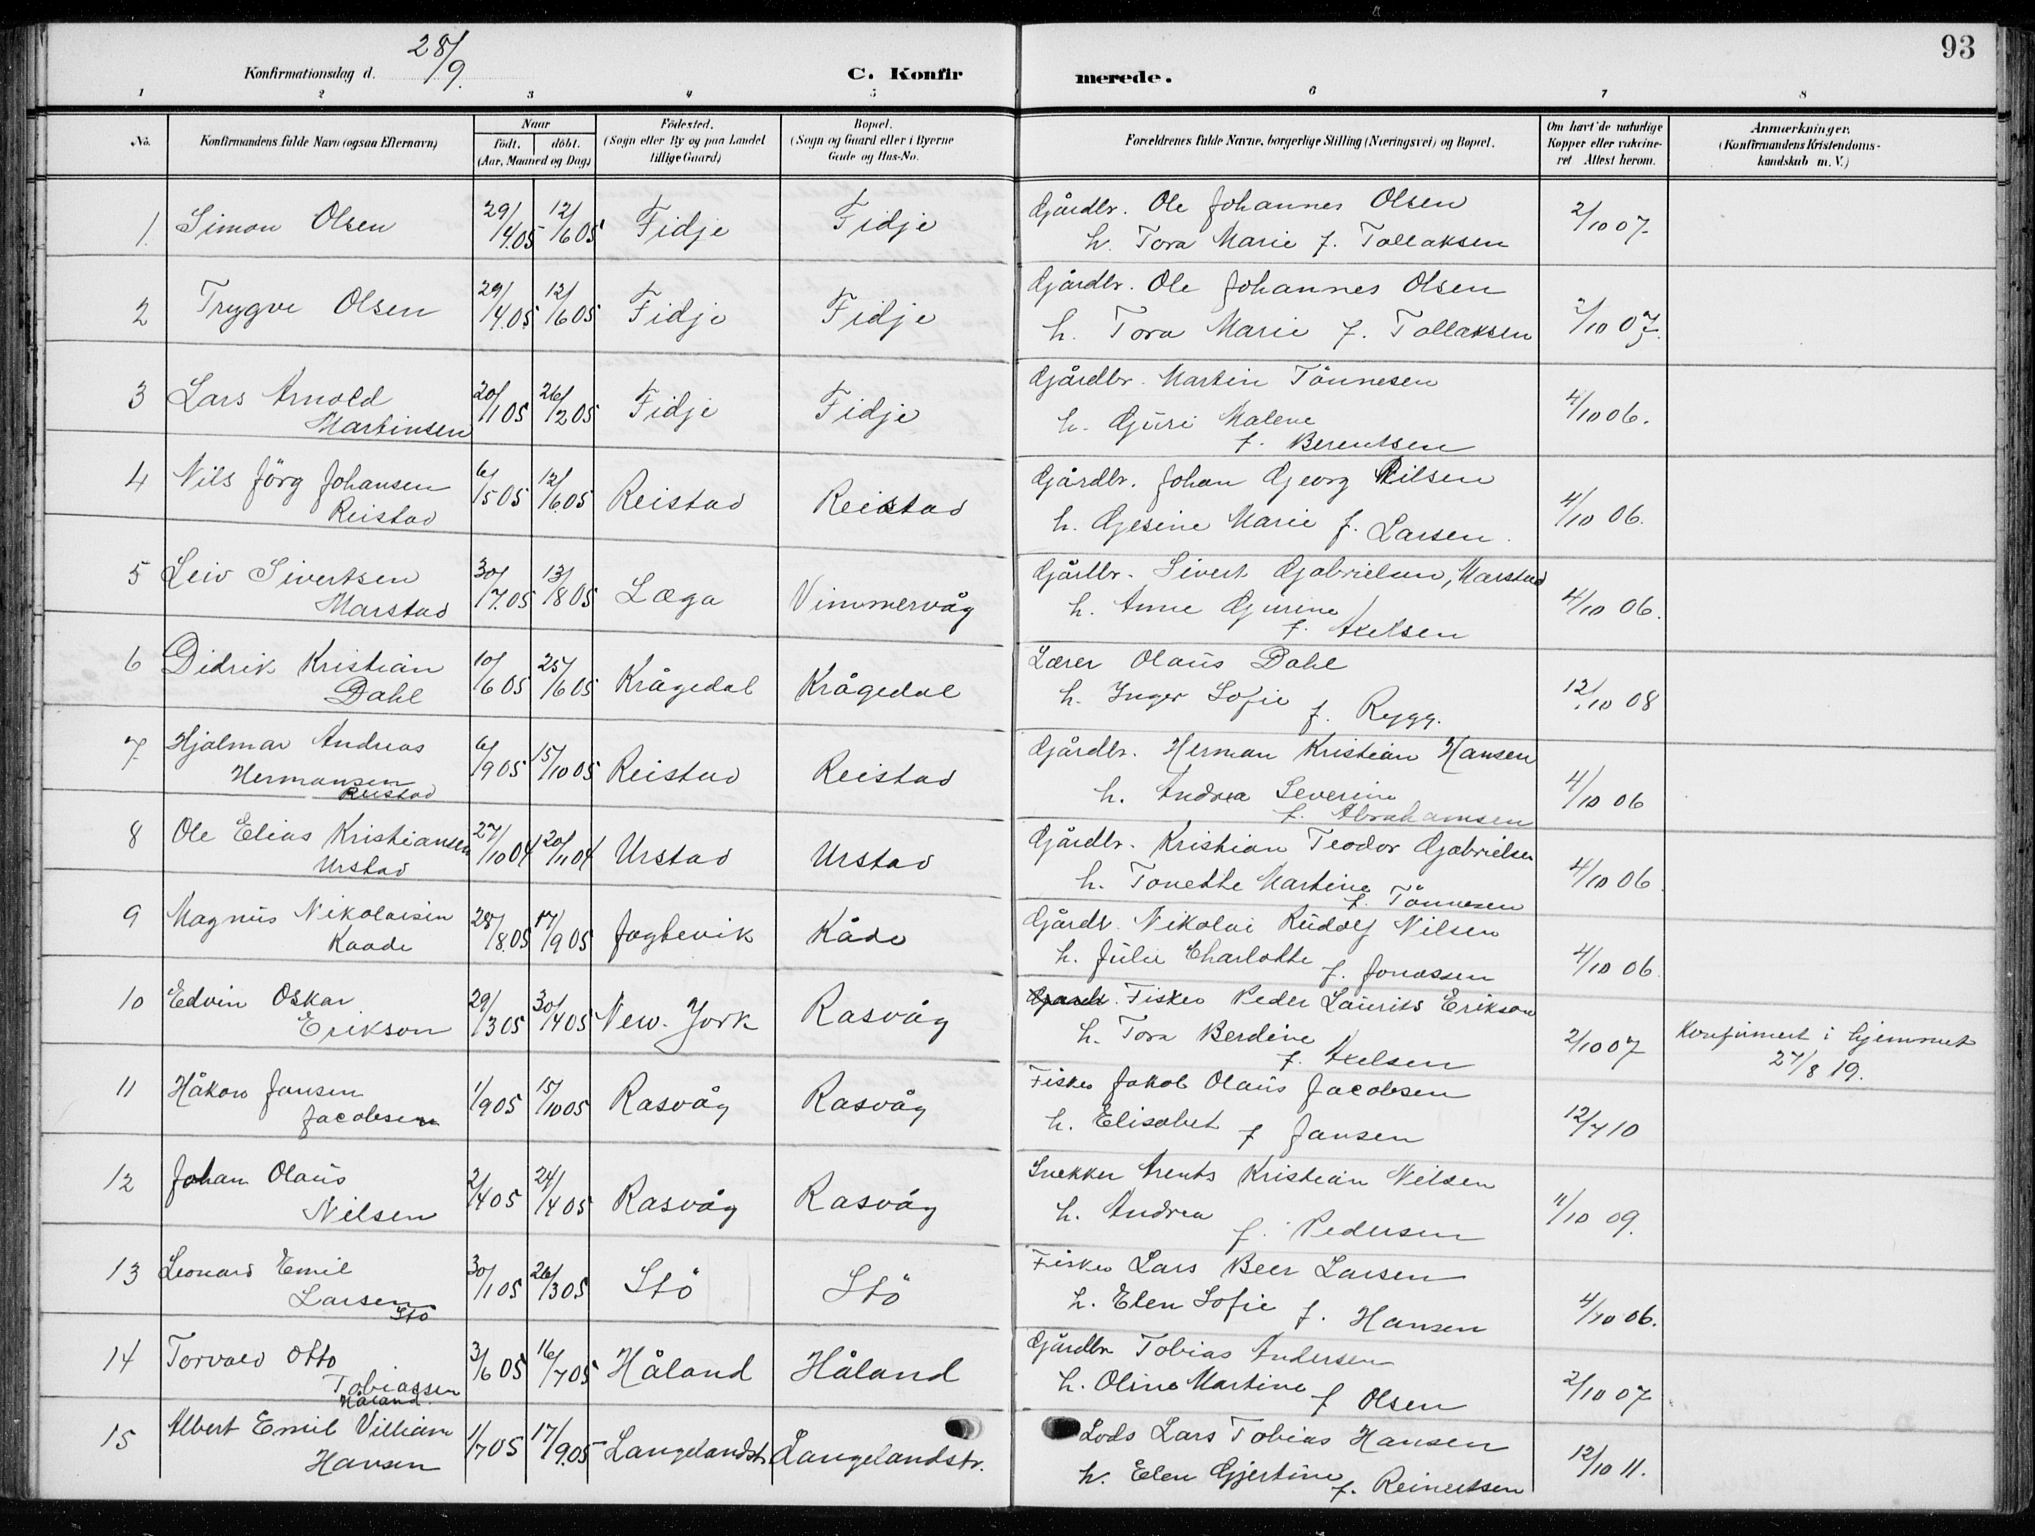 93
Konfirmationsdag d. 28/9.
C. Konfirmerede.
1 2 3 4 5 6 7 8
No. Konfirmandens fulde Navn (ogsaa Efternavn) Naar født. døbt. (Aar, Maaned og Dag) Fødested. (Sogn eller By og paa Landet tillige Gaard) Bopæl. (Sogn og Gaard eller i Byerne Gade og Hus-No. Forældrenes fulde Navne, borgerlige Stilling (Næringsvei) og Bopæl. Om havt de naturlige Kopper eller vakcineret Attest herom. Anmærkninger. (Konfirmandens Kristendomskundskab m. V.)
1. Simon Olsen 29/4.05 12/6 05 Fidje Fidje Gårdbr. Ole Johannes Olsen 2/10 07.
h. Tora Marie f. Tallaksen
2 Trygve Olsen 29/4.05. 12/6 05 Fidje Fidje Gårdbr. Ole Johannes Olsen 2/10 07.
h. Tora Marie f. Tallaksen
3 Lars Arnold 20/1 05 26/2 05 Fidje Fidje Gårdbr. Martin Tönnesen 4/10 06.
Martinsen h. Guri Malene
f. Berentsen
4 Nils Jörg Johansen 6/5 05 12/6.05 Reistad Reistad Gårdbr. Johan Georg Nilsen 4/10 06.
Reistad h. Gesine Marie f. Larsen.
5 Leiv Sivertsen 30/7.05 13/8 05 Læga Vimmervåg Gårdbr. Sivert Gabrielsen, Marstad 4/10 06.
Marstad h. Anne Gurine
f. Axelsen
6 Didrik Kristian 10/6 05 25/6 05 Krågedal Krågedal Lærer Olaus Dahl 12/10 08
Dahl h. Inger Sofie f. Rygg.
7. Hjalmar Andreas 6/9 05 15/10 05 Reistad Reistad Gårdbr. Herman Kristian Hansen 4/10 06
Hermansen h. Andrea Severine
Reistad f. Abrahamsen
8 Ole Elias Kristiansen 27/10 04 20/11 04 Urstad Urstad Gårdbr. Kristian Teodor Gabrielsen 4/10 06
Urstad h. Tonette Martine
f. Tönnesen
9 Magnus Nikolaisen 28/8.05 17/9 05 Jogbevik Kåde Gårdb. Nikolai Rudolf Nilsen 4/10 06
Kaade h. Julie Charlotte f. Jonassen
10 Edvin Oskar 29/3 05 30/4 05 New. York Rasvåg Fisker Peder Laurits Erikson 2/10 07 Konfirmert i hjemmet
Erikson h. Tora Berdine 27/8 19.
f. Axelsen
11 Håkon Jansen 1/9 05 15/10 05 Rasvåg Rasvåg Fisker Jakob Olaus Jacobsen 12/7 10
Jacobsen h. Elisabet f Jansen
12 Johan Olaus 2/4 05 24/4 05 Rasvåg Rasvåg Snekker Arents Kristian Nilsen 11/10 09.
Nilsen h. Andrea f. Pedersen
13 Leonard Emil 30/1 05 26/3 05 Stö Stö Fisker Lars Beer Larsen 4/10 06.
Larsen h. Elen Sofie f. Hansen
Stö
14 Torvald Otto 3/6 05 16/7 05 Håland Håland Gårdbr Tobias Andersen 2/10 07
Tobiassen h. Oline Martine f Olsen
Håland.
15 Albert Emil Villiam 1/7 05 17/9.05 Langelandstr. Langelandstr. Lods Lars Tobias Hansen 12/10 11.
Hansen h. Elen Gjertine f. Reinertsen